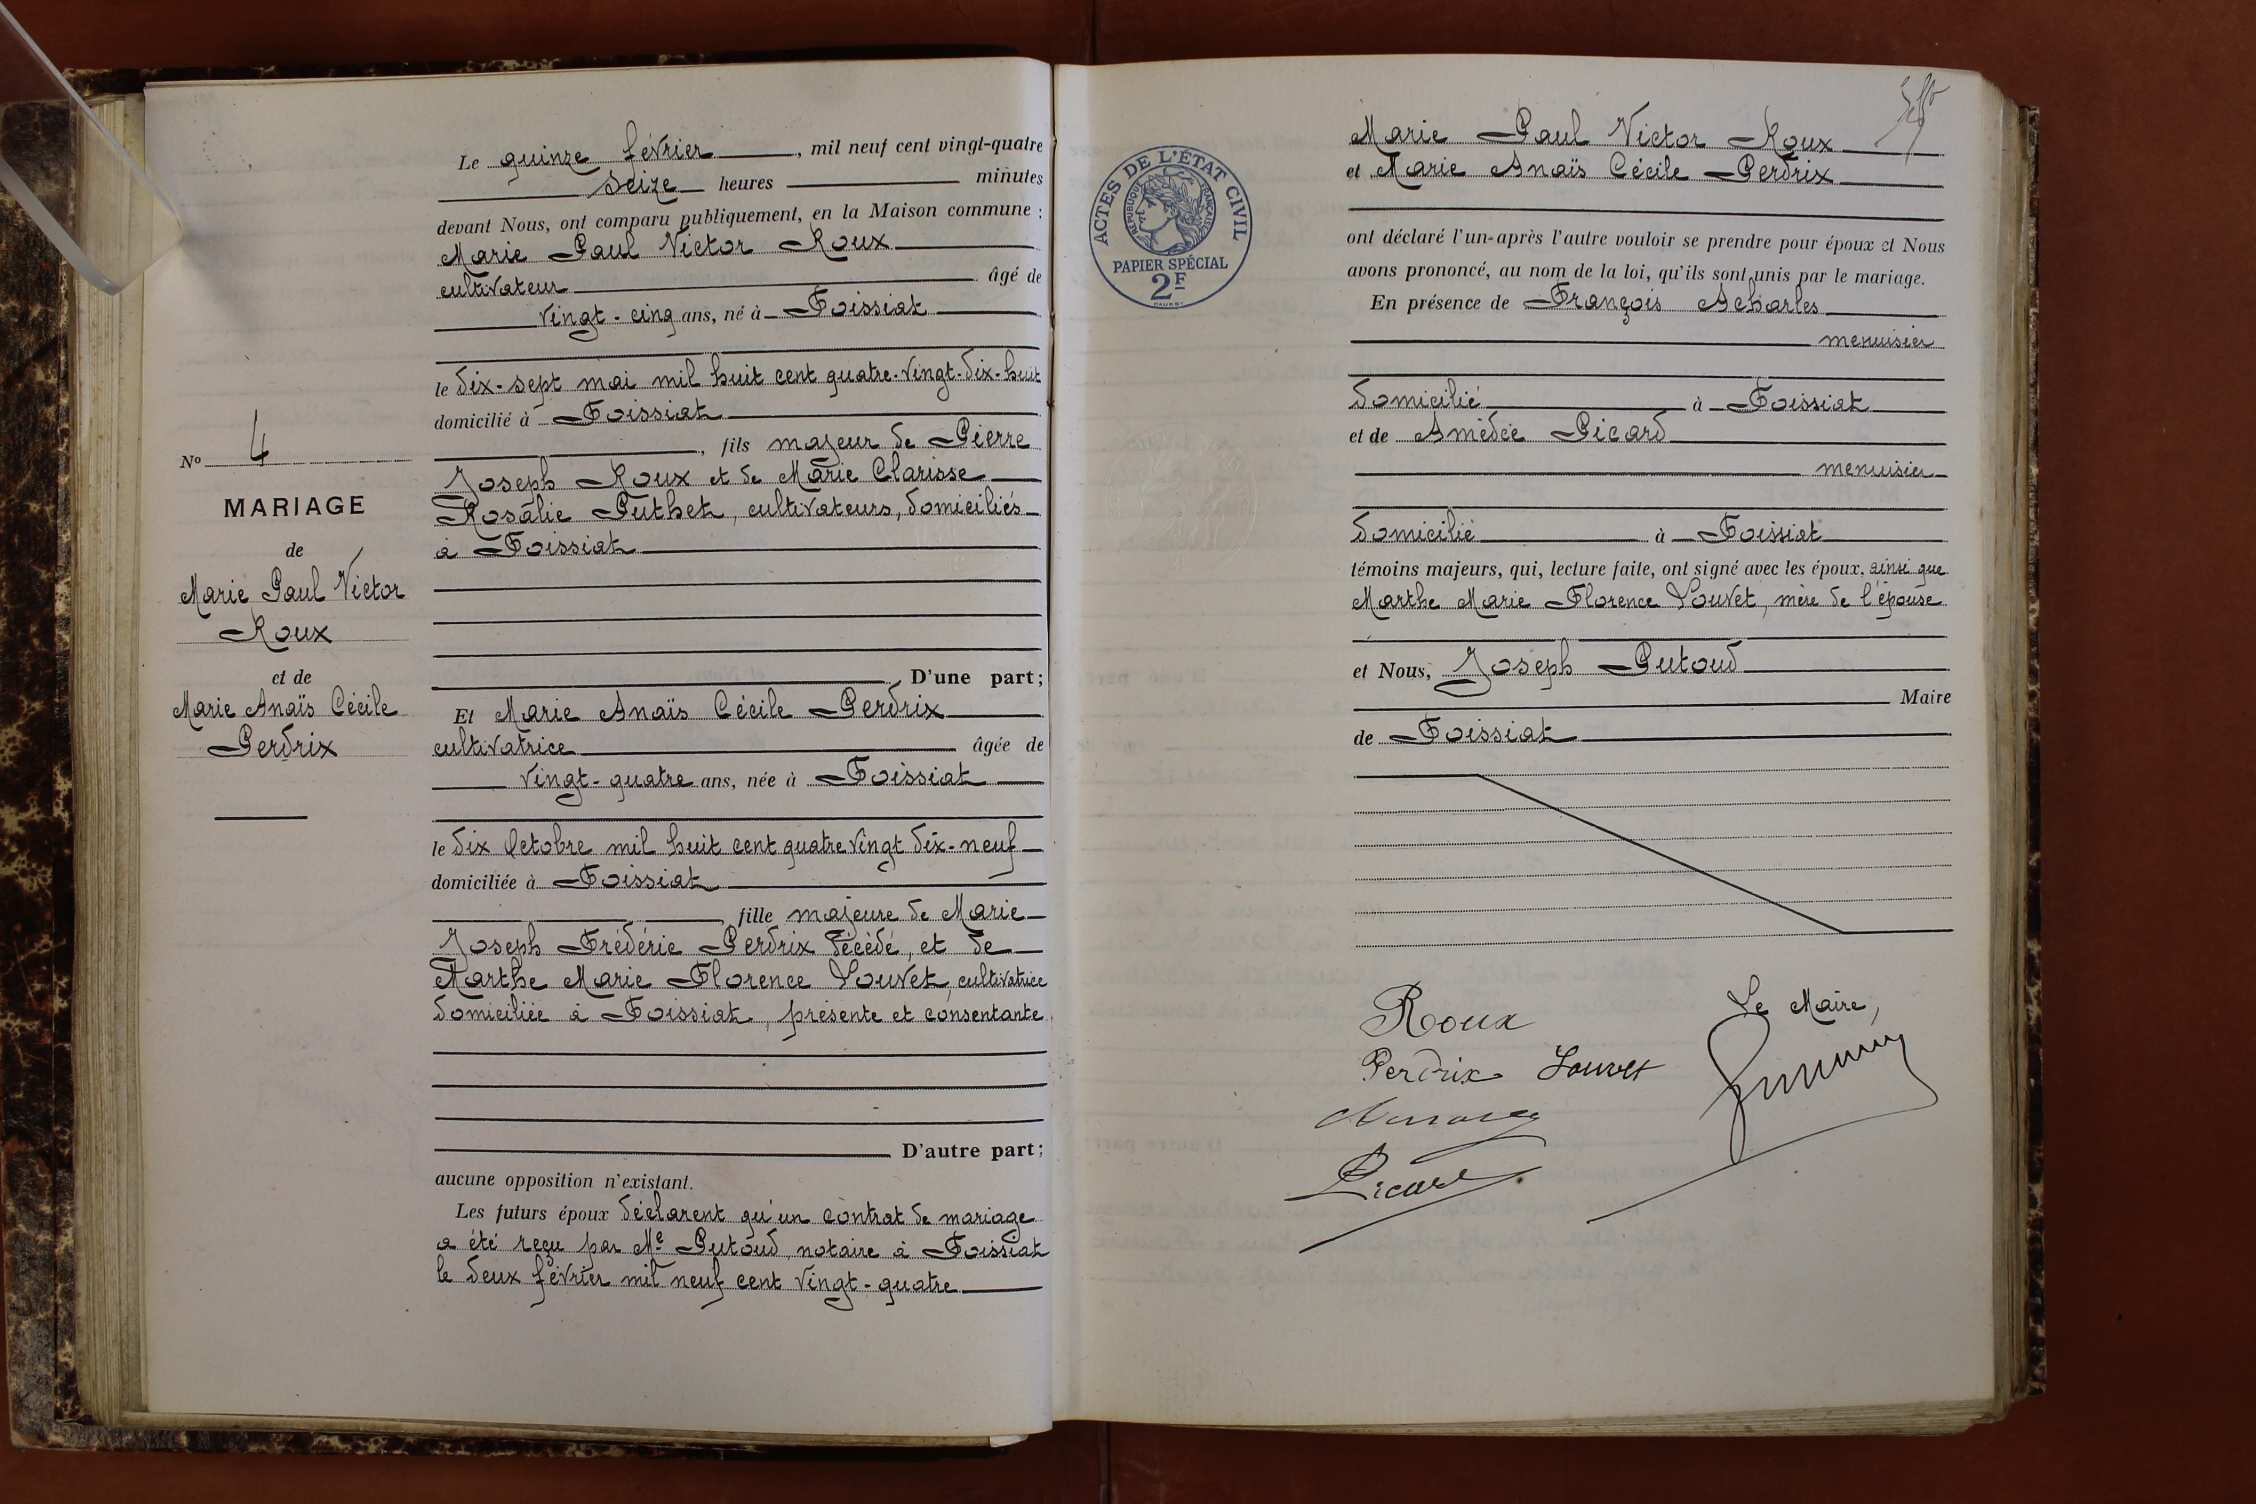 Le quinze février, mil neuf cent vingt-quatre
seize heures minutes
devant Nous, ont comparu publiquement, en la Maison commune :
Marie Paul Victor Roux
cultivateur âgé de
vingt-cinq ans, né à Foissiat
le dix-sept mai mil huit cent quatre-vingt-dix-huit
domicilié à Foissiat
, fils majeur de Pierre
Joseph Roux et de Marie Clarisse
Rosalie Puthet, cultivateurs, domiciliés
à Foissiat
D'une part;
Nº 4
MARIAGE
de
Marie Paul Victor
Roux
et de
Marie Anaïs Cécile
Perdrix
Et Marie Anaïs Cécile Perdrix
cultivatrice âgée de
vingt-quatre ans, née à Foissiat
le dix Octobre mil huit cent quatre vingt dix-neuf
domiciliée à Foissiat
, fille majeure de Marie
Joseph Frédéric Perdrix décédé, et de
Marthe Marie Florence Louvet, cultivatrice
domiciliée à Foissiat, présente et consentante
D'autre part;
aucune opposition n'existant.
Les futurs époux déclarent qu'un contrat de mariage
a été reçu par Me Putoud, notaire à Foissiat
le deux février mil neuf cent vingt-quatre
ACTES DE L'ÉTAT CIVIL
RÉPUBLIQUE FRANÇAISE
PAPIER SPÉCIAL
2F
Marie Paul Victor Roux
et Marie Anaïs Cécile Perdrix
ont déclaré l'un-après l'autre vouloir se prendre pour époux et Nous
avons prononcé, au nom de la loi, qu'ils sont unis par le mariage.
En présence de François Acharles
menuisier
domicilié à Foissiat
et de Amédée Picard
menuisier
domicilié à Foissiat
témoins majeurs, qui, lecture faite, ont signé avec les époux, ainsi que
Marthe Marie Florence Louvet, mère de l'épouse
et Nous, Joseph Putoud
Maire
de Foissiat
Roux
Le Maire,
Perdrix Louvet
Picard